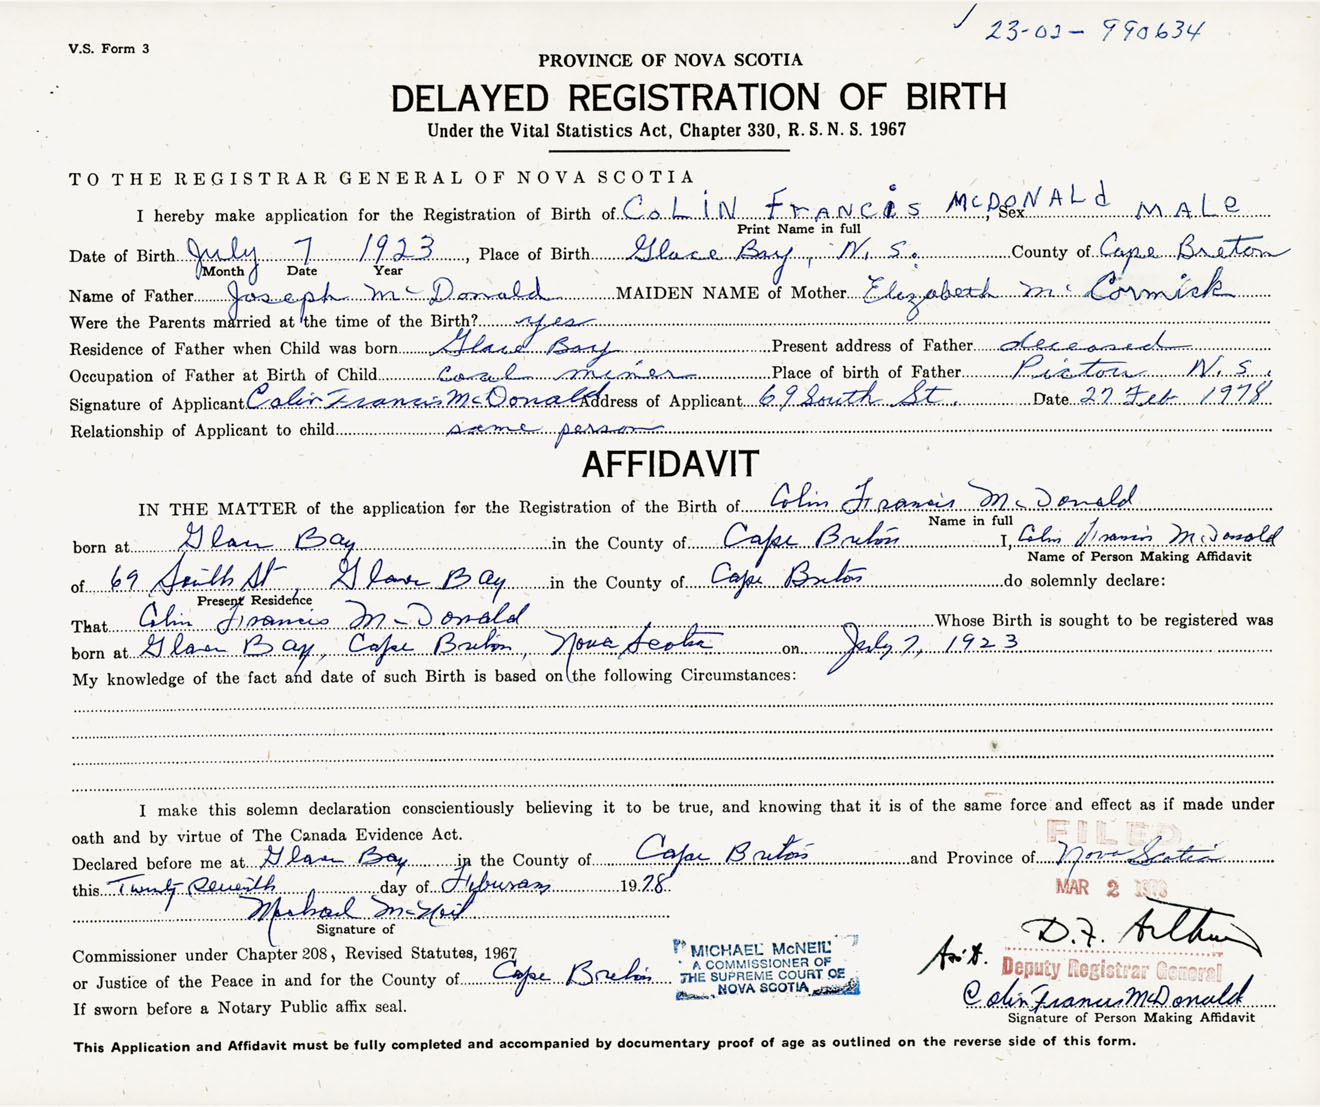 23-02-990634
V.S. Form 3
PROVINCE OF NOVA SCOTIA
DELAYED REGISTRATION OF BIRTH
Under the Vital Statistics Act, Chapter 330, R.S.N.S. 1967
TO THE REGISTRAR GENERAL OF NOVA SCOTIA
I hereby make application for the Registration of Birth of COLIN FRANCIS McDONALd, Sex MALE
Print Name in full
Date of Birth July 7 1923, Place of Birth Glace Bay, N.S. County of Cape Breton
Month Date Year
Name of Father Joseph McDonald MAIDEN NAME of Mother Elizabeth McCormick
Were the Parents married at the time of the Birth? yes
Residence of Father when Child was born Glace Bay Present address of Father deceased
Occupation of Father at Birth of Child coal miner Place of birth of Father Pictou N.S.
Signature of Applicant Colin Francis McDonald Address of Applicant 69 South St. Date 27 Feb 1978
Relationship of Applicant to child same person
AFFIDAVIT
IN THE MATTER of the application for the Registration of the Birth of Colin Francis McDonald
Name in full
born at Glace Bay in the County of Cape Breton I, Colin Francis McDonald
Name of Person Making Affidavit
of 69 South St, Glace Bay in the County of Cape Breton do solemnly declare:
Present Residence
That Colin Francis McDonald Whose Birth is sought to be registered was
born at Glace Bay, Cape Breton, Nova Scotia on July 7, 1923
My knowledge of the fact and date of such Birth is based on the following Circumstances:
I make this solemn declaration conscientiously believing it to be true, and knowing that it is of the same force and effect as if made under
oath and by virtue of The Canada Evidence Act.
FILED
Declared before me at Glace Bay in the County of Cape Breton and Province of Nova Scotia
this Twenty Seventh day of February 1978
MAR 2 1978
Michael McNeil
Signature of
D.F. Arthur
Commissioner under Chapter 208, Revised Statutes, 1967
MICHAEL McNEIL
A COMMISSIONER OF
THE SUPREME COURT OF
NOVA SCOTIA
Asst. Deputy Registrar General
or Justice of the Peace in and for the County of Cape Breton
Colin Francis McDonald
If sworn before a Notary Public affix seal.
Signature of Person Making Affidavit
This Application and Affidavit must be fully completed and accompanied by documentary proof of age as outlined on the reverse side of this form.